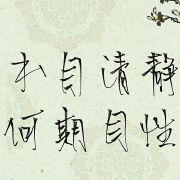 本自清静
何期自性